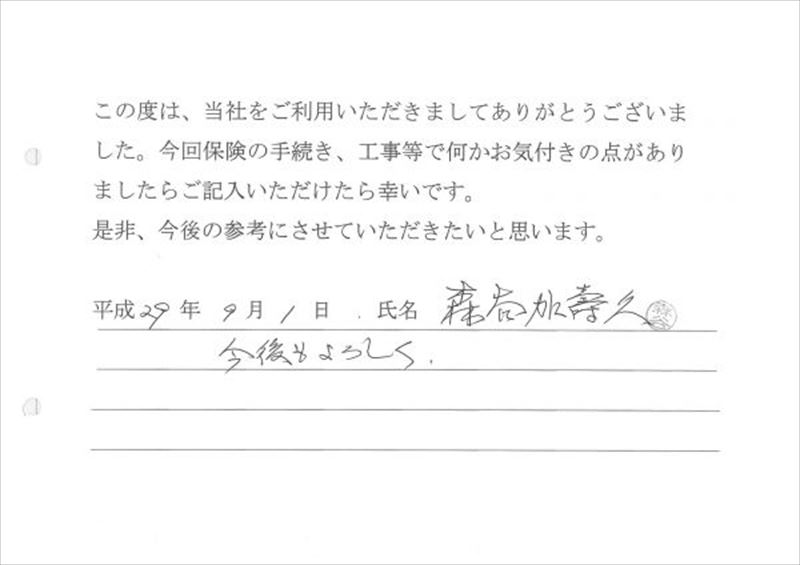 この度は、当社をご利用いただきましてありがとうございま
した。今回保険の手続き、工事等で何かお気付きの点があり
ましたらご記入いただけたら幸いです。
是非、今後の参考にさせていただきたいと思います。
平成29年 9月1日 氏名 森谷加壽久 森谷
今後もよろしく.